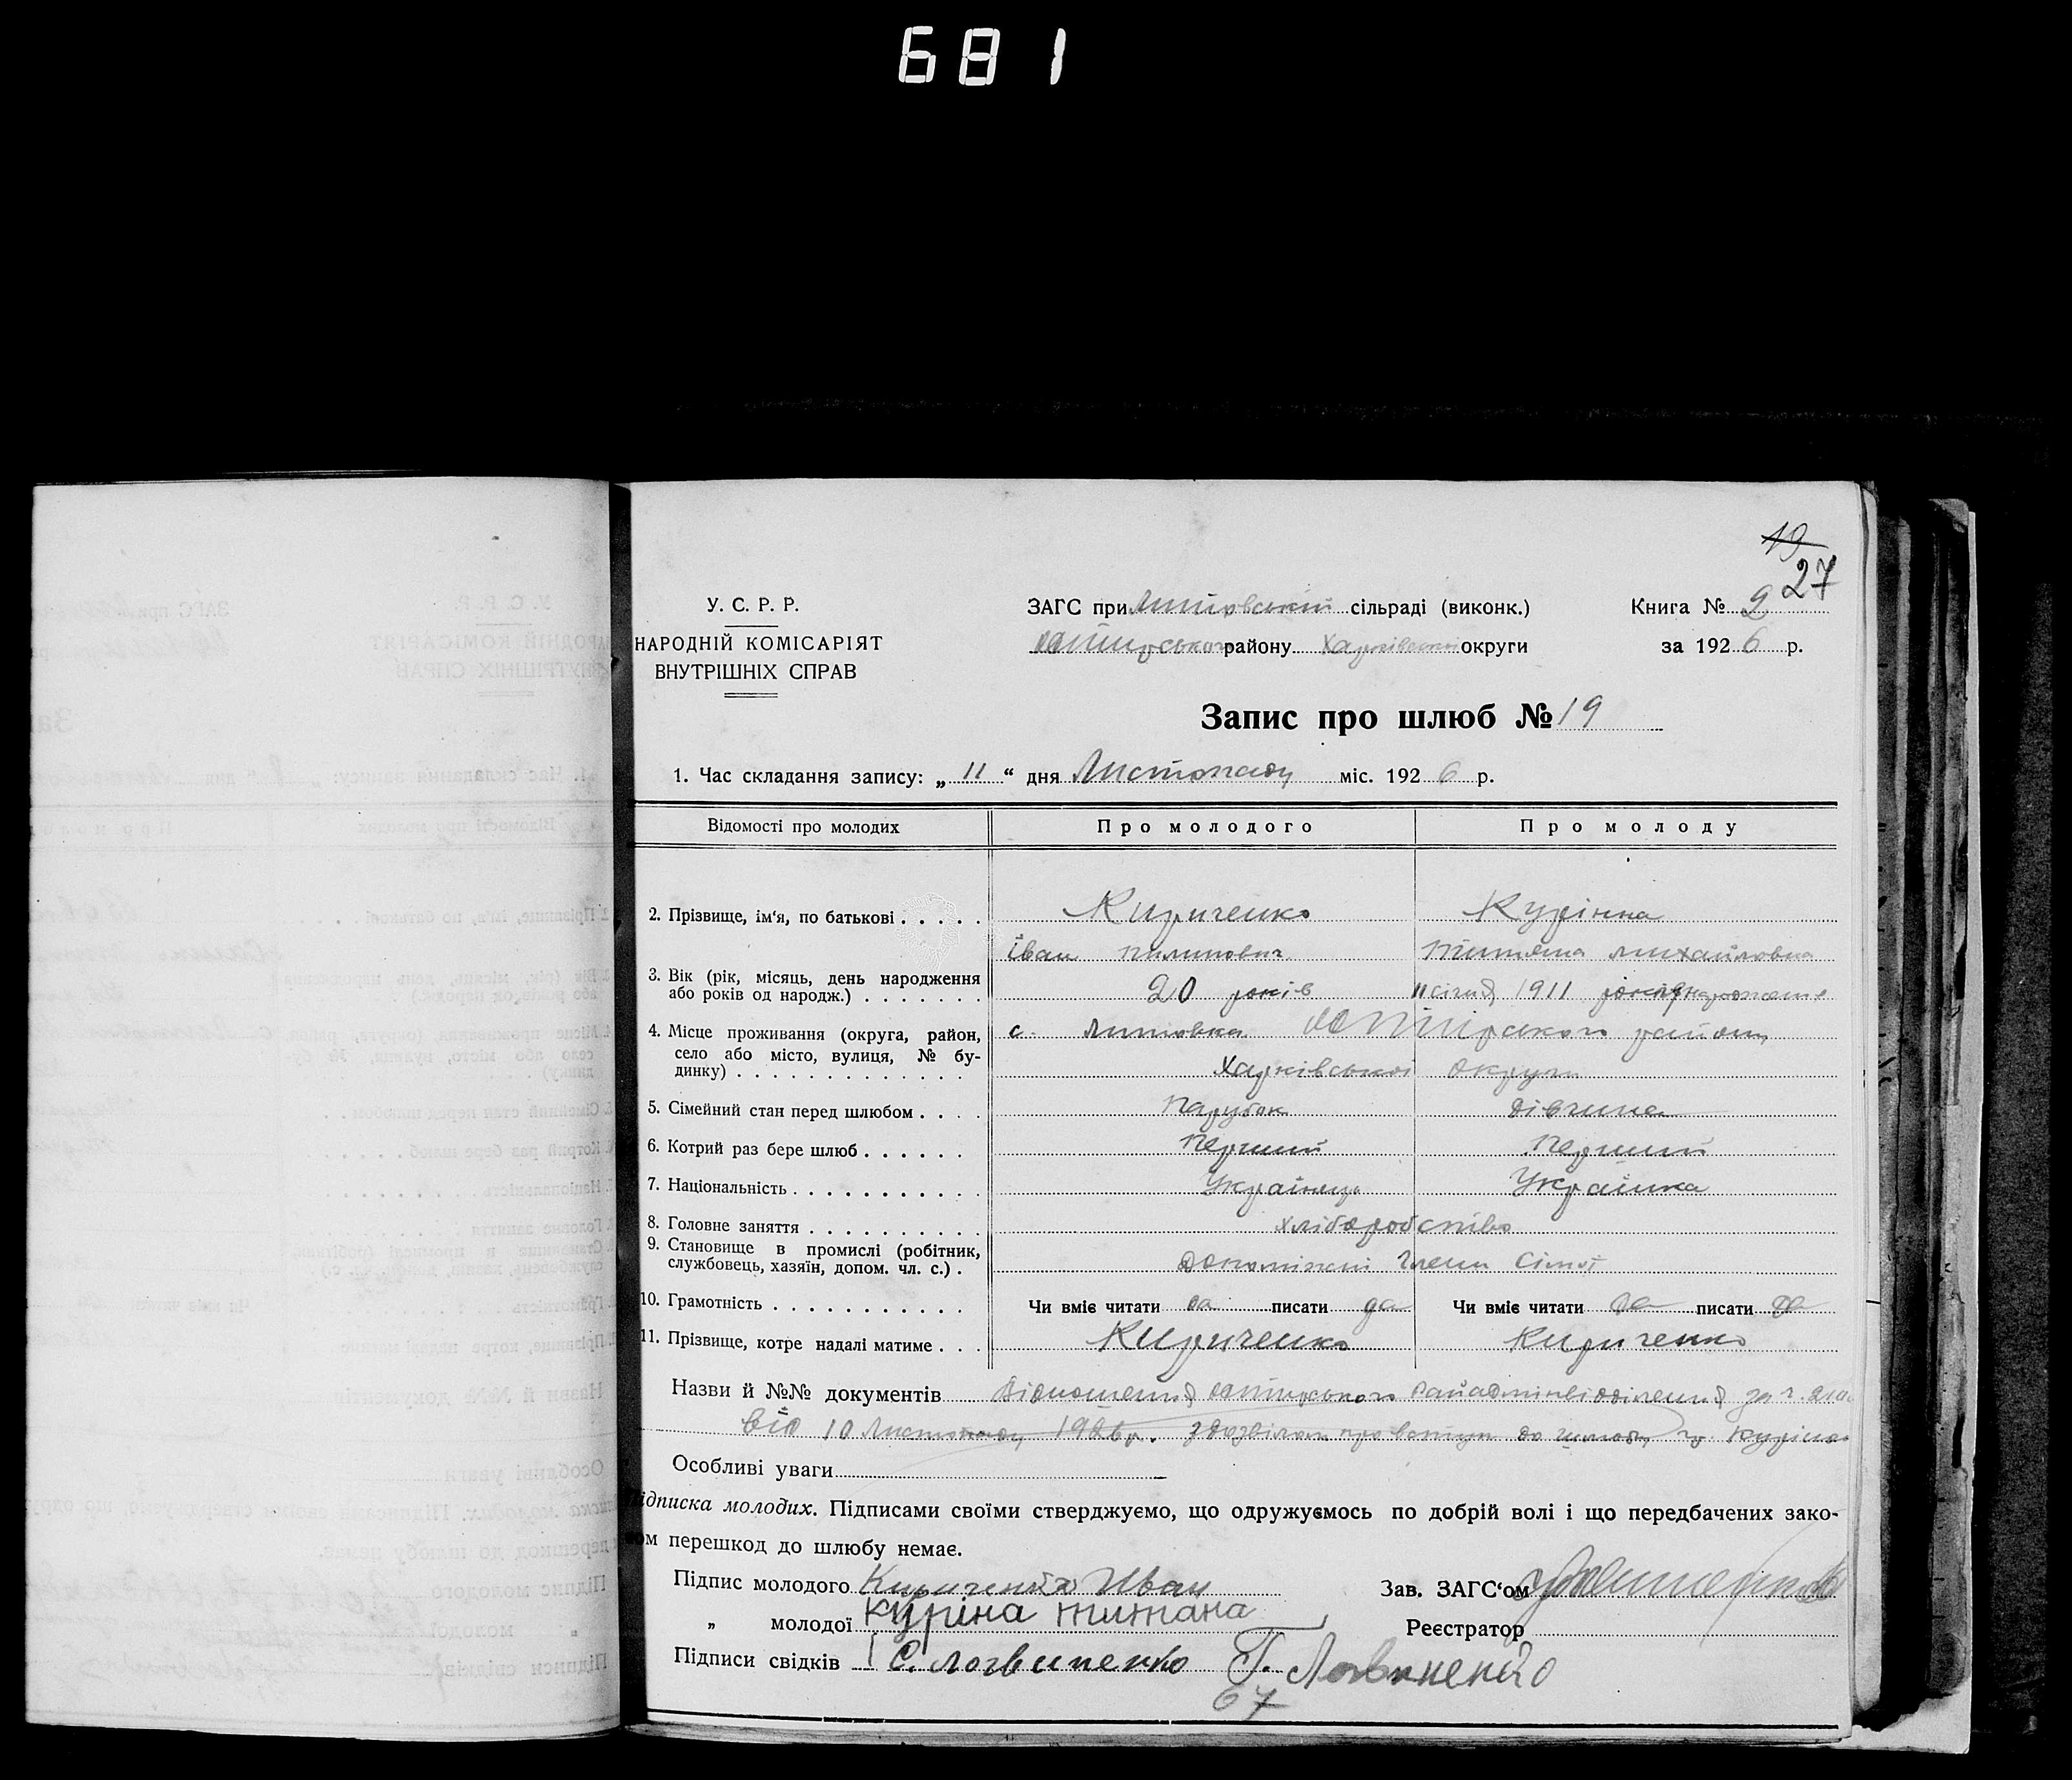 681
19
27
У. С. Р. Р.
НАРОДНІЙ КОМІСАРІЯТ
ВНУТРІШНІХ СПРАВ
ЗАГС при Липовській сільраді (виконк.)
району Харківської округи
Книга № 2
за 1926 р.
Запис про шлюб № 19
1. Час складання запису: „11“ дня Листопаду міс. 1926 р.
Відомості про молодих
Про молодого
Про молоду
2. Прізвище, ім'я, по батькові
Кириченко
Курінна
Іван Пилипович
Титяна Михайловна
3. Вік (рік, місяць, день народження
або років од народж.)
20 років
11 січня 1911
4. Місце проживання (округа, район,
село або місто, вулиця, № бу-
динку)
с. Липовка району
Харківської Округи
5. Сімейний стан перед шлюбом
Парубок
дівчина
6. Котрий раз бере шлюб
Перший
Перший
7. Національність
Українець
Українка
8. Головне заняття
хліборобство
9. Становище в промислі (робітник,
службовець, хазяїн, допом. чл. с.)
допоміжні члени сімї
10. Грамотність
Чи вміє читати да писати да
Чи вміє читати да писати да
11. Прізвище, котре надалі матиме
Кириченко
Кириченко
Назви й №№ документів Відношення
від 10 Листопаду 1926 р. з дозвілом про вступ до шлюбу гр.
Особливі уваги
Підписка молодих. Підписами своїми стверджуємо, що одружуємось по добрій волі і що передбачених зако-
ном перешкод до шлюбу немає.
Підпис молодого Кириченко Иван
Зав. ЗАГС‘ом
„ молодої Куріна Титяна
Реєстратор
Підписи свідків 1 С. Логвиненко Г. Логвиненко
67